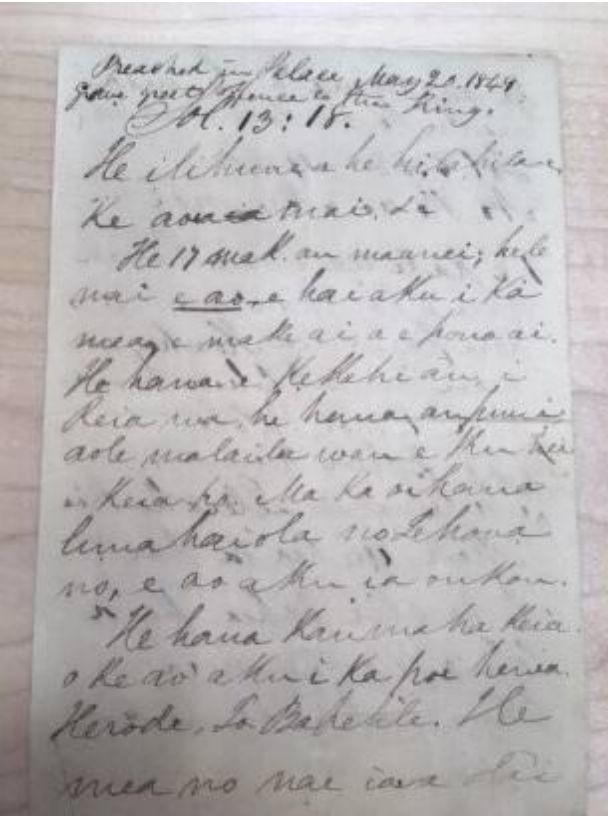 Preached in Palace May 20. 1849.
gave great offence to the King.
Sol. 13:18.
He ilihune a he hilahila
Ke ao mai.
He 17 mak. au maanei; hele
mai e ao, e hai aku i ka
mea e make ai a e pono ai.
kekahi au i
Keia wa, he
aole malaila wau e Ku nei
i Keia po. Ma Ka oihana
luna haiola no Iehova
no, e ao aku ia oukou.
He hana Kaumaha Keia
o Ke ao aku i Ka poe hewa.
Herode, Io. Bapetite. He
mea no nae